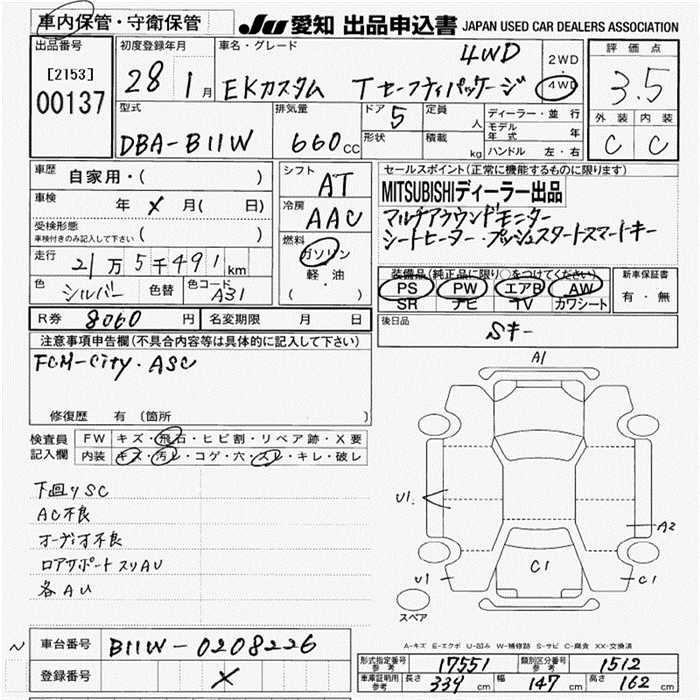 車内保管・守衛保管
JU 愛知 出品申込書 JAPAN USED CAR DEALERS ASSOCIATION
出品番号
[2153]
00137
初度登録年月
28 1月
車名・グレード
4WD
EKカスタム Tセーフティパッケージ
2WD
4WD
評価点
3.5
外装 内装
C C
型式
DBA-B11W
排気量
660cc
ドア 5
形状
定員 人
積載 kg
ディーラー・並行
モデル年式 年
ハンドル 左・右
車歴
自家用・( )
車検
年 メ 月( 日)
受検形態
車検付きのみ記入して下さい ( )
走行
21万5千491km
色
シルバー
色替
色コード
A31
シフト
AT
冷房
AAC
燃料
ガソリン
軽・油
( )
セールスポイント(正常に機能するものに限ります)
MITSUBISHIディーラー出品
マルチアラウンドモニター
シートヒーター・プッシュスタートスマートキー
装備品(純正品に限り○をつけてください)
PS PW エアB AW
SR ナビ TV カワシート
新車保証書
有・無
R券 8060円
名変期限 月 日
後日品
Sキー
注意事項申告欄(不具合内容等は具体的に記入して下さい)
FCM-City・ASC
修復歴 有 (箇所 )
検査員記入欄
FW キズ・飛石・ヒビ割・リペア跡・X要
内装 キズ・汚レ・コゲ・穴・スレ・キレ・破レ
下回りSC
AC不良
オーディオ不良
ロアサポートスリAU
各AU
A1
U1.
A2
U1
C1
C1
スペア
A-キズ E-エクボ U-凹み W-補修跡 S-サビ C-腐食 XX-交換済
車台番号 B11W-0208226
登録番号 メ
形式指定番号参考 17551
類別区分番号参考 1512
車庫証明用参考 長さ 339cm 幅 147cm 高さ 162cm